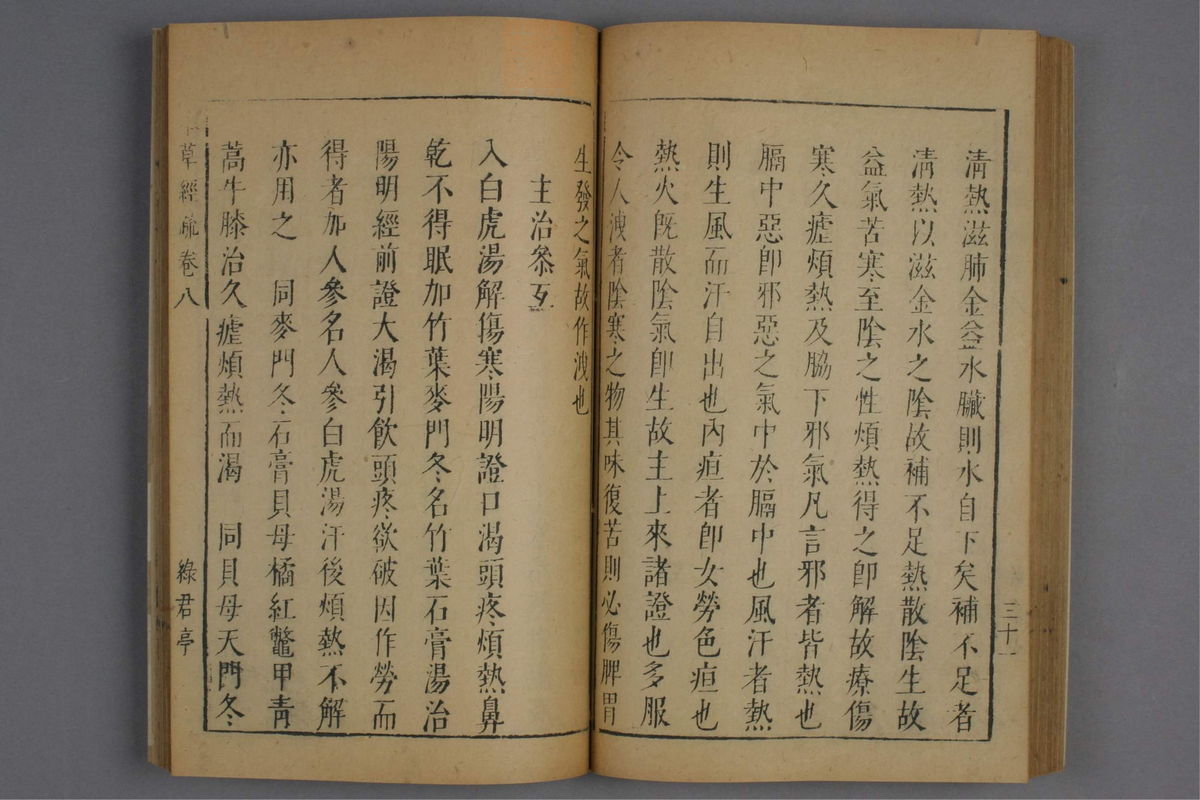 清熱滋肺金益水臟則水自下矣補不足者
清熱以滋金水之陰故補不足熱散陰生故
益氣苦寒至陰之性煩熱得之卽解故療傷
寒久瘧煩熱及脇下邪氣凡言邪者皆熱也
膈中惡卽邪惡之氣中於膈中也風汗者熱
則生風而汗自出也內疸者卽女勞色疸也
熱火旣散陰氣卽生故主上來諸證也多服
令人洩者陰寒之物其味復苦則必傷脾胃
三十一
生發之氣故作洩也
主治叅互
入白虎湯解傷寒陽明證口渴頭疼煩熱鼻
乾不得眠加竹葉麥門冬名竹葉石膏湯治
陽明經前證大渴引飮頭疼欲破因作勞而
得者加人參名人參白虎湯汗後煩熱不解
亦用之　同麥門冬石膏貝母橘紅鼈甲靑
蒿牛膝治久瘧煩熱而渴　同貝母天門冬
草經疏卷八
綠君亭